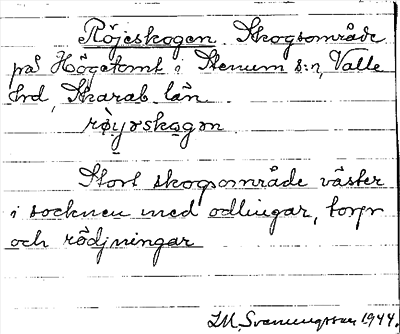 Röjeskogen. Skogsområde
på Högatomt i Stenum s:n, Valle
hrd, Skarab. län.
røyǝskogǝn
Stort skogsområde väster
i socknen med odlingar, torp
och rödjningar
I.M. Svenungsson 1944.